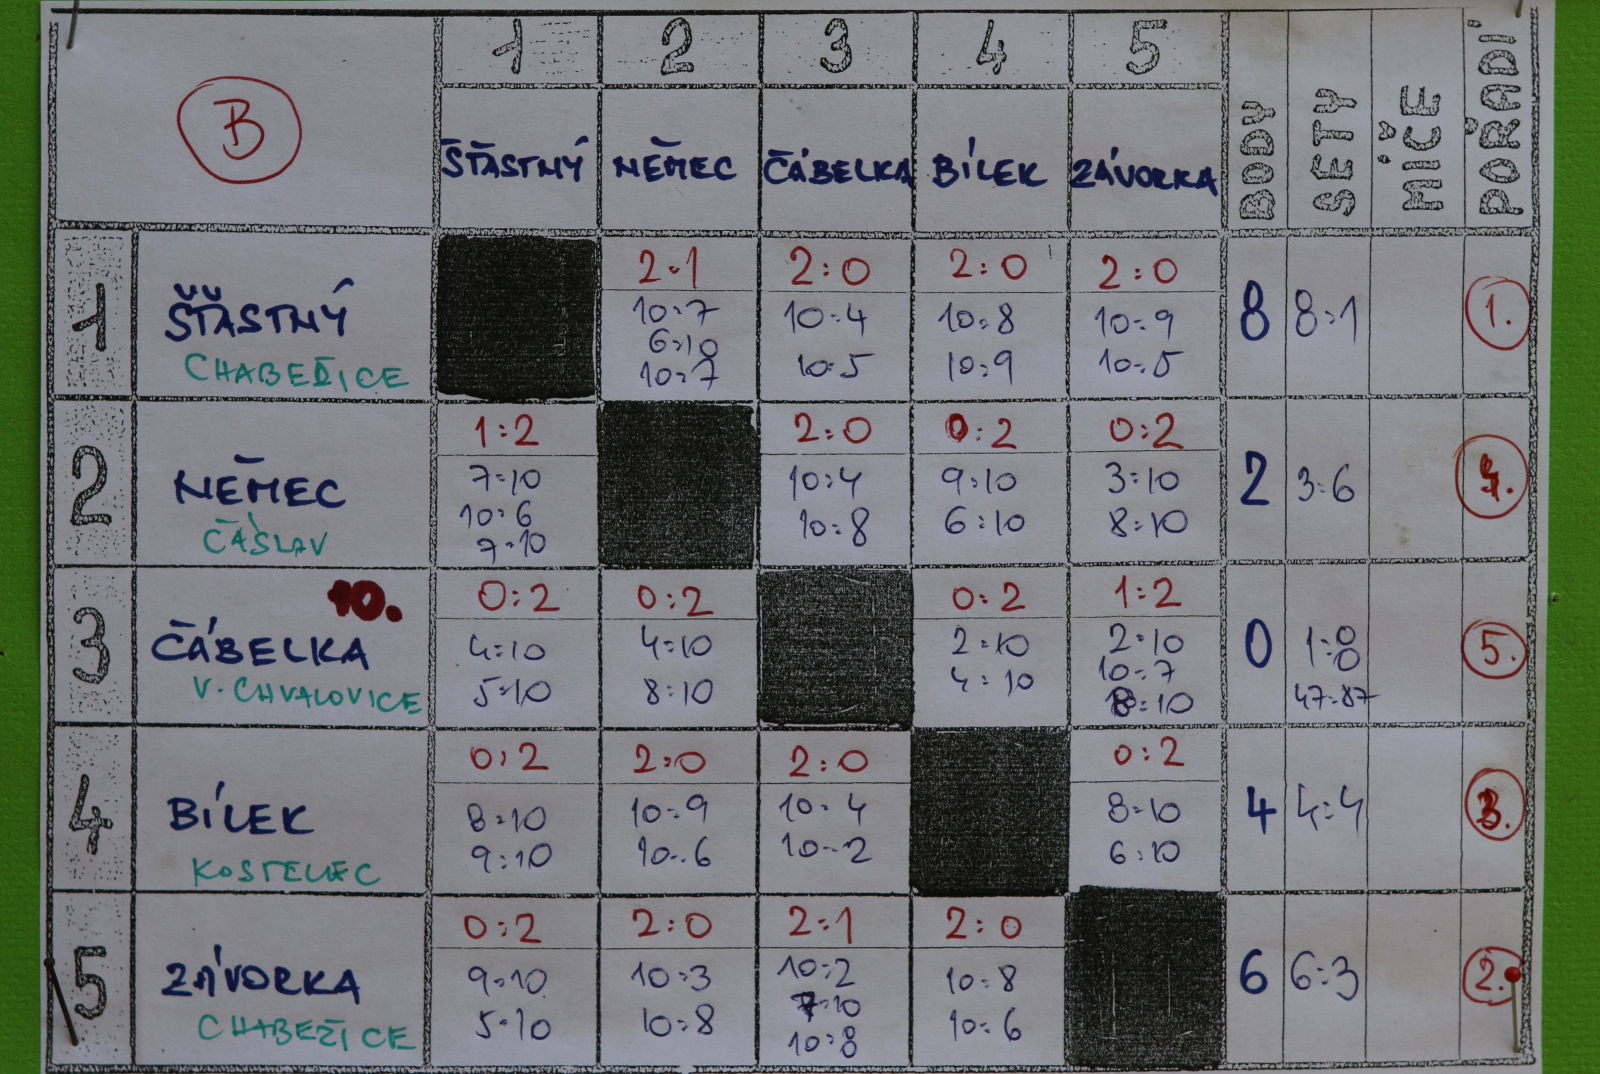 1 2 3 4 5
B
ŠŤASTNÝ NĚMEC ČÁBELKA BÍLEK ZÁVORKA BODY SETY MÍČE POŘADÍ
1 ŠŤASTNÝ 2:1 2:0 2:0 2:0 8 8:1 1.
10:7 10:4 10:8 10:9
6:10
CHABEŘICE 10:7 10:5 10:9 10:5
2 NĚMEC 1:2 2:0 0:2 0:2 2 3:6 4.
7:10 10:4 9:10 3:10
10:6 10:8 6:10 8:10
ČÁSLAV 7:10
10.
3 ČÁBELKA 0:2 0:2 0:2 1:2 0 1:8 5.
4:10 4:10 2:10 2:10
10:7
V. CHVALOVICE 5:10 8:10 4:10 8:10 47:87
4 BÍLEK 0:2 2:0 2:0 0:2 4 4:4 3.
8:10 10:9 10:4 8:10
KOSTELEC 9:10 10:6 10:2 6:10
5 ZÁVORKA 0:2 2:0 2:1 2:0 6 6:3 2.
9:10 10:3 10:2 10:8
7:10
CHABEŘICE 5:10 10:8 10:8 10:6